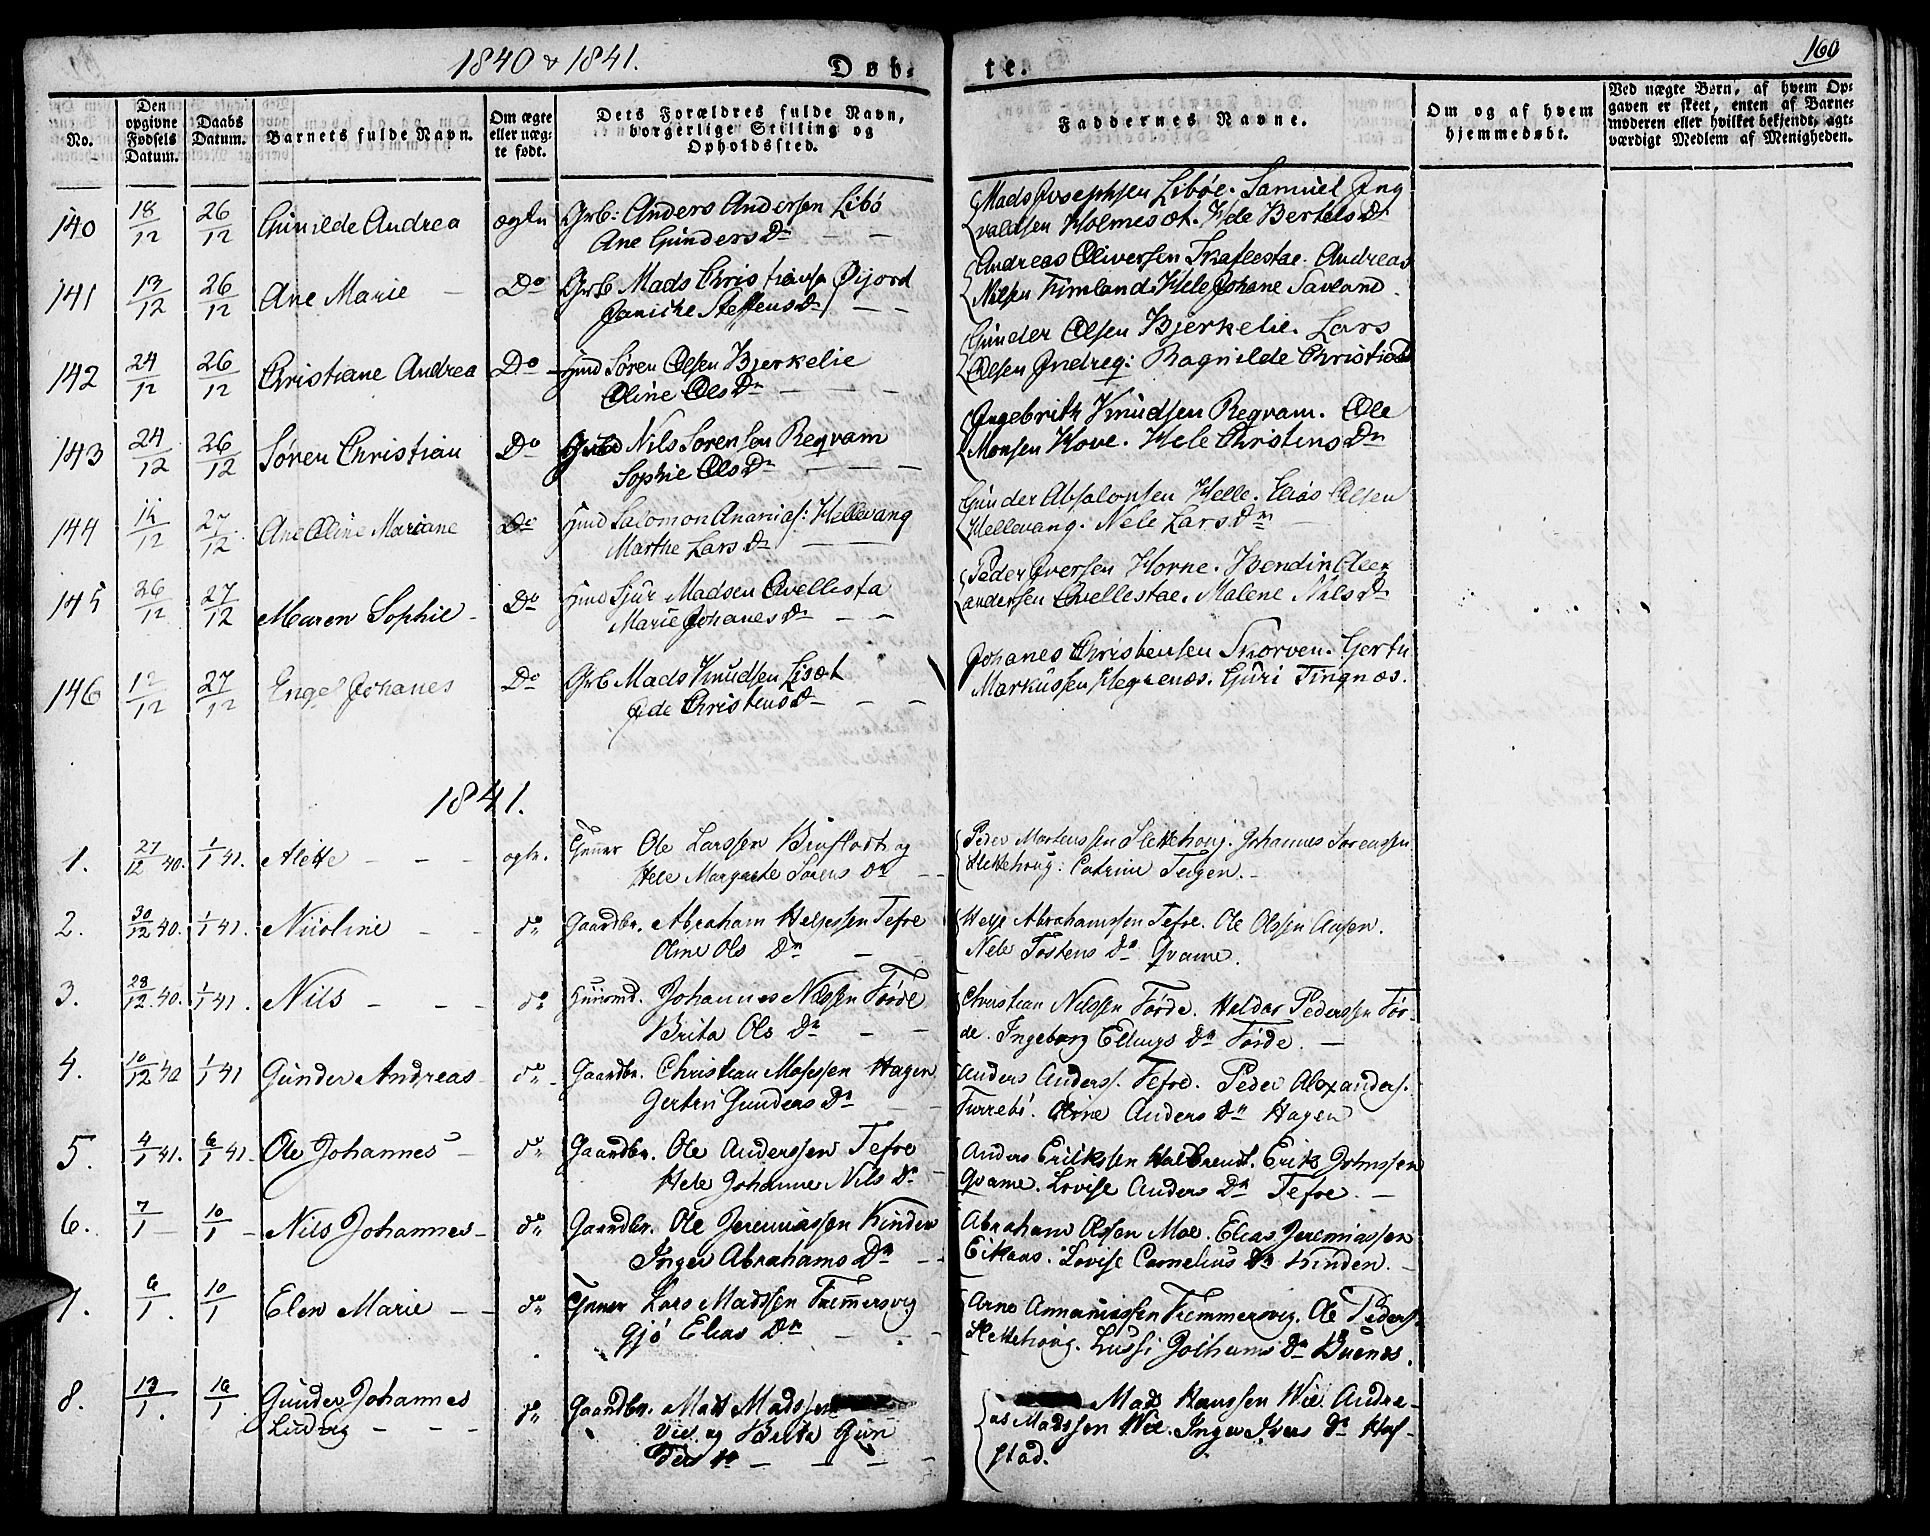 1840 & 1841.
Døb-
te.
160
No.
Den opgivne Fødsels Datum.
Daabs Datum.
Barnets fulde Navn.
Om ægte eller uæg-te født.
Dets Forældres fulde Navn, borgerlige Stilling og Opholdssted.
Faddernes Navne.
Om og af hvem hjemmedøbt.
Ved uægte Børn, af hvem Op-gaven er skeet, enten af Barne-moderen eller hvilket bekjendt, agt-værdigt Medlem af Menigheden.
140 18/12 26/12 Gunilde Andrea ægte Grb: Anders Andersen Libø
Ane Gunders Dr
Mads Josephsen Libøe. Samuel Ing
valdsen Holmesæt. Hele Bertels Dr
141 13/12 26/12 Ane Marie Do Grb Mads Christians Øijord
Janiche Steffens Dr
Andreas Oliversen Andreas
Nilsen Timland. Hele Johane Savland.
142 24/12 26/12 Christiane Andrea Do Huusmd Søren Olsen Bjerkelie
Oline Ols Dr
Gunder Olsen Bjerkelie. Lars
Olsen Indreq: Ragnilde Christi
143 24/12 26/12 Søren Christian Do Nils Sørensen Reqvam
Sophie Ols Dr
Ingebrikt Knudsen Reqvam. Ole
Monsen Hove. Hele Christens Dr
144 /12 27/12 Ane Oline Mariane Do Salomon Ananias: Hellevang
Marthe Lars Dr
Gunder Absalonsen Helle. Elias Olsen
Hellevang. Nele Lars Dr
145 26/12 27/12 Maren Sophie Do Sjur Madsen Qvellesta
Marie Johanes Dr
Peder Iversen Horne. Bendix Alex
andersen Qvellestae. Malene Nils Dr
146 12/12 27/12 Engel Johanes Do Grb Mads Knudsen Lisæt
Christens Dr
Johanes Christensen Skorven. Gertu
Markussen Guri Tingnæs.
1841.
1. 27/12 40. 1/1 41. Alette ægte. Ole Larssen og
Hele Margarete Sørens Dr
Peder Mortenssen Slettehoug. Johannes Sørenssen
Slettehoug: Catrine Teigen.
2. 30/12 40. 1/1 41. Nicoline do Gaardbr. Abraham Helgessen Tefre
Oline Ols Dr
Helge Abrahamssen Tefre. Ole Olssen Aasen.
Nele Tostens Dr Qvame.
3. 28/12. 40. 1/1 41. Nils do Huusmd. Johannes Nilssen Førde
Brita Ols Dr
Christian Nilssen Førde. Haldor Pederssen Før-
de. Ingeborg Ellings Dr Førde.
4. 10/12 40 1/1 41 Gunder Andreas do Gaardbr. Christian Mosessen Hagen
Gertru Gunders Dr
Anders Anderss. Tefre. Peder Alexanders.
Turrebø. Oline Anders Dr Hagen
5. 4/1 41. 6/1 41. Ole Johannes do Gaardbr. Ole Anderssen Tefre
Hele Johanne Nils Dr
Anders Erikssen Halbrendt. Erik Johnssen
Qvame. Lovise Anders Dr Tefre.
6. 7/1 10/1 Nils Johannes do Gaardbr. Ole Jeremiassen Kinden
Inger Abrahams Dr
Abraham Olssen Moe. Elias Jeremiassen
Eikaas. Lovise Cornelius Dr Kinden.
7. 6/1. 10/1 Elen Marie do Lars Madssen Tremmersvig
Gjø Elias Dr
Arne Annaniassen Tremmersvig. Ole Peders.
Slettehoug. Lussi Jothams Dr Buenæs.
8. 13/1. 16/1 Gunder Johannes
Ludvig
do Gaardbr. Mads Madssen
Vie og Brita Gun
ders Dr
Mads Hanssen Wie. Andre-
as Madssen Wie. Inger Ivers Dr Haf-
stad.